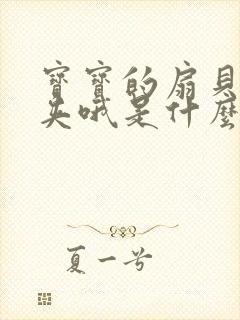 寶寶的扇貝
英哦是什麼
夏一兮